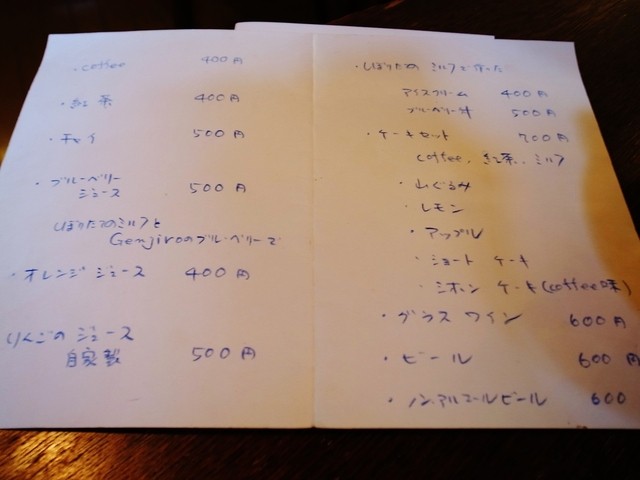 ・coffee 400円
・紅茶 400円
・チャイ 500円
・ブルーベリー
ジュース 500円
しぼりたてのミルクと
Genjiroのブルーベリーで
・オレンジジュース 400円
りんごのジュース
自家製 500円
・しぼりたてのミルクで作った
アイスクリーム 400円
ブルーベリー 500円
・ケーキセット 700円
coffee、紅茶、ミルク
・山ぐるみ
・レモン
・アップル
・ショートケーキ
・シホンケーキ(coffee味)
・グラスワイン 600円
・ビール 600円
・ノンアルコールビール 600